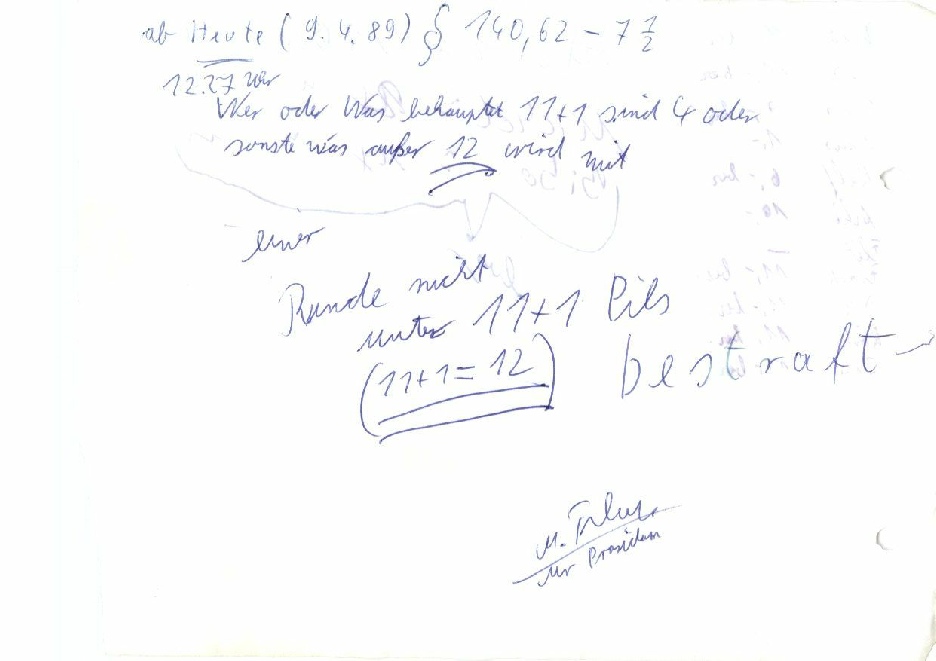 ab Heute (9.4.89) § 140,62 - 7 1/2
12.27 Uhr
Wer oder Was behauptet 11+1 sind 4 oder
sonste was außer 12 wird mit
einer
Runde nicht
unter 11+1 Pils
(11+1=12) bestraft
M.
Präsident